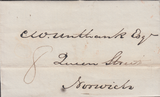 C W Unthank Esqr
8
Queen Street
Norwich